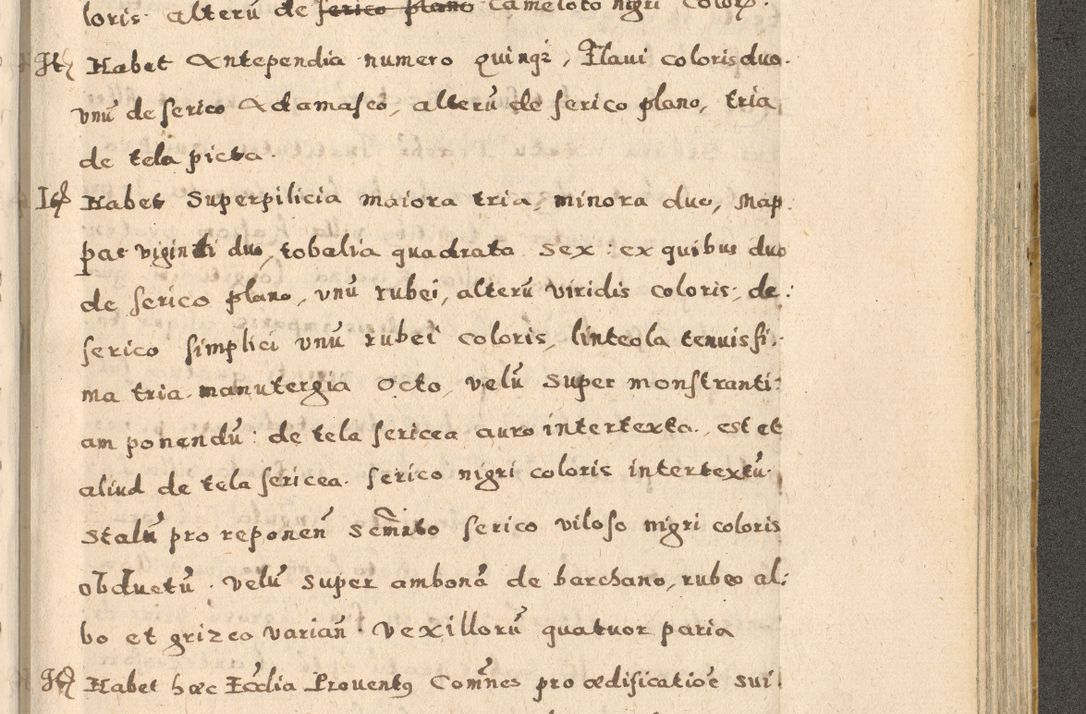 loris alterū de serico plano Cameloto nigri Coloris.
It Habet Antependia numero quinqȝ, Flaui coloris duo.
vnū de serico Adamasco, alterū de serico plano, tria
de tela picta.
It Habet Superpilicia maiora tria, minora duo, Map:
pae viginti duo, tobalia quadrata sex: ex quibus duo
de serico plano, vnū rubei, alterū viridis coloris, de:
serico simplici vnū rubei coloris, linteola tenuissi:
ma tria. manutergia octo, velū super monstranti:
am ponendū: de tela sericea auro intertexta, est et
aliud de tela sericea. serico nigri coloris intertextū.
Stalū pro reponen̄ serico viloso nigri coloris
obductū. velū super ambonā de barchano, rubeo al:
bo et grizeo varian̄. vexillorū quatuor paria
It Habet haec Prouentꝰ Comn̄es pro aedificatiōe sui